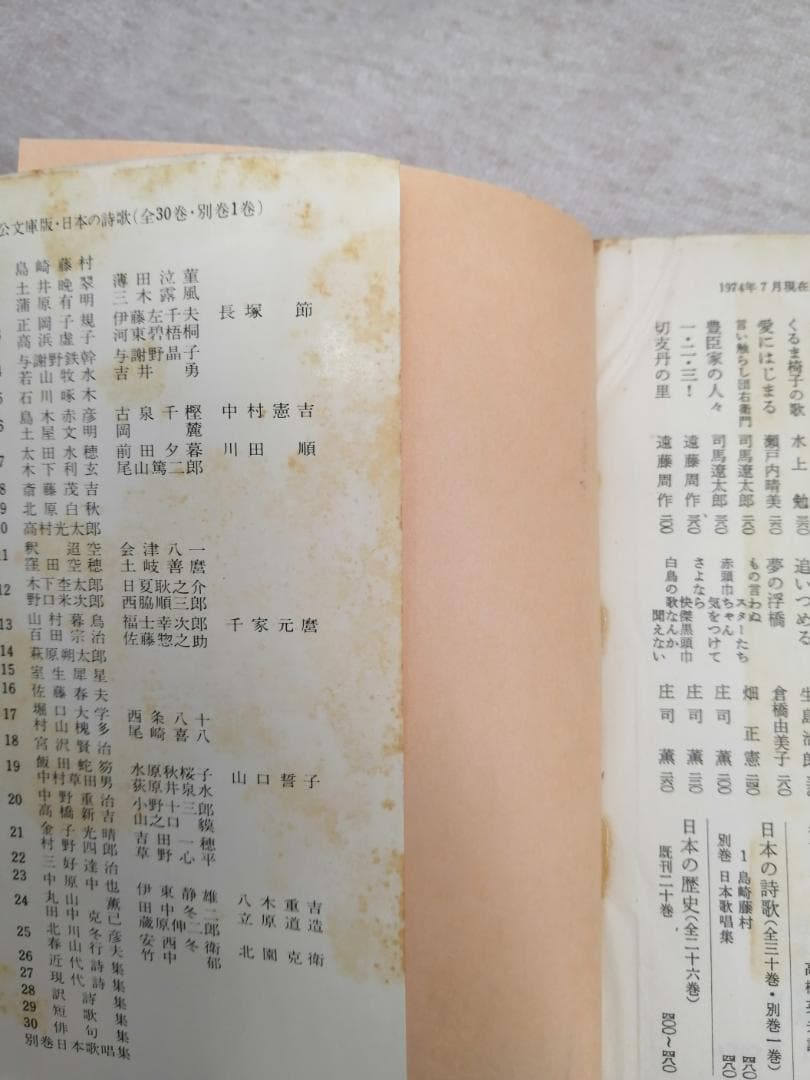 公文庫版・日本の詩歌(全30巻・別巻1巻)
島崎藤村
土井晩翠 薄田泣菫
蒲原有明 三木露風
正岡子規 伊藤左千夫 長塚節
高浜虚子 河東碧梧桐
与謝野鉄幹 与謝野晶子
若山牧水 吉井勇
石川啄木
6 島木赤彦 古泉千樫 中村憲吉
土屋文明 岡麓
7 太田水穂 前田夕暮 川田順
木下利玄 尾山篤二郎
8 斎藤茂吉
9 北原白秋
10 高村光太郎
11 釈迢空 会津八一
窪田空穂 土岐善麿
12 木下杢太郎 日夏耿之介
野口米次郎 西脇順三郎
13 山村暮鳥 福士幸次郎 千家元麿
百田宗治 佐藤惣之助
14 萩原朔太郎
15 室生犀星
16 佐藤春夫
17 堀口大学 西条八十
村山槐多 尾崎喜八
18 宮沢賢治
19 飯田蛇笏 水原秋桜子 山口誓子
中村草田男 荻原井泉水
20 中野重治 小野十三郎
高橋新吉 山之口貘
21 金子光晴 吉田一穂
村野四郎 草野心平
22 三好達治
23 中原中也
24 丸山薫 伊東静雄 八木重吉
田中克己 田中冬二 立原道造
25 北川冬彦 蔵原伸二郎
春山行夫 安西冬衛 北園克衛
26 近代詩集 竹中郁
27 現代詩集
28 訳詩集
29 短歌集
30 俳句集
別巻日本歌唱集
1974年7月現在
くるま椅子の歌 水上勉
愛にはじまる 瀬戸内晴美
言い触らし団右衛門 司馬遼太郎
豊臣家の人々 司馬遼太郎
一・二・三! 遠藤周作
切支丹の里 遠藤周作
追いつめる
夢の浮橋 倉橋由美子
もの言わぬスターたち 畑正憲
赤頭巾ちゃん気をつけて 庄司薫
さよなら快傑黒頭巾 庄司薫
白鳥の歌なんか聞えない 庄司薫
日本の詩歌(全三十巻・別巻一巻)
1 島崎藤村
別巻 日本歌唱集
日本の歴史(全二十六巻)
既刊二十巻